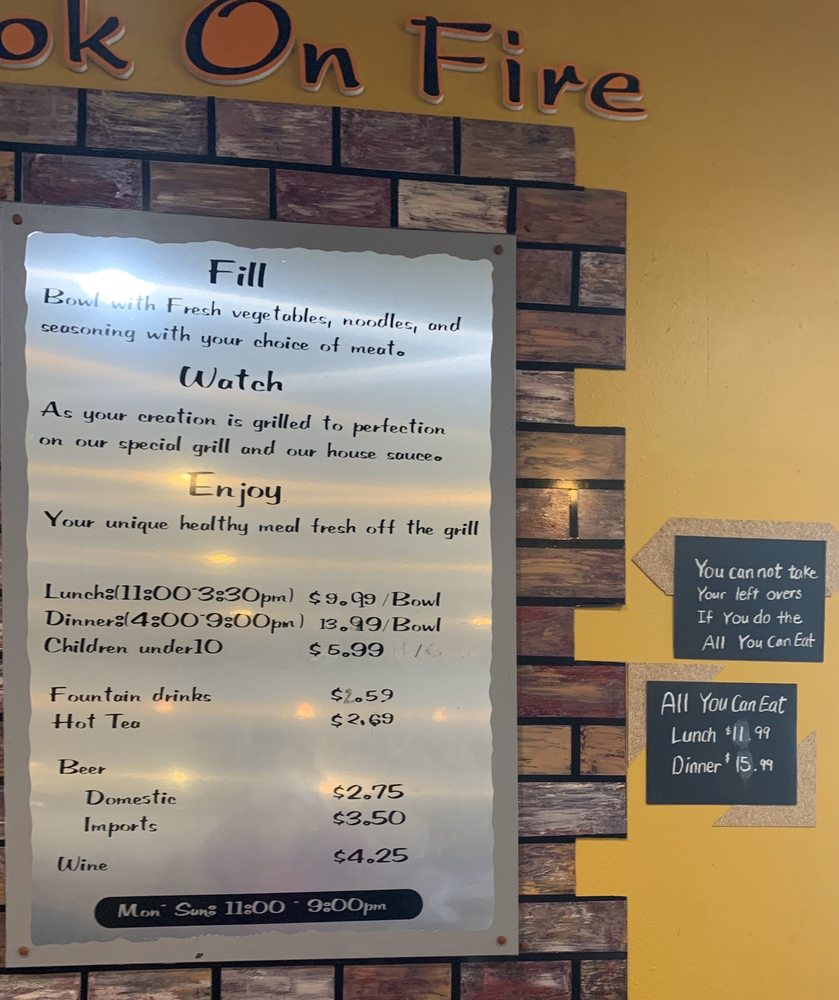 ok On Fire
Fill
Bowl with Fresh vegetables, noodles, and
seasoning with your choice of meat.
Watch
As your creation is grilled to perfection
on our special grill and our house sauce.
Enjoy
Your unique healthy meal fresh off the grill
Lunch:(11:00-3:30pm) $9.99 /Bowl
Dinner:(4:00-9:00pm) 13.99/Bowl
Children under10 $5.99
Fountain drinks $2.59
Hot Tea $2.69
Beer
Domestic $2.75
Imports $3.50
Wine $4.25
Mon- Sun: 11:00 - 9:00pm
You can not take
Your left overs
If You do the
All You Can Eat
All You Can Eat
Lunch $11.99
Dinner $15.99